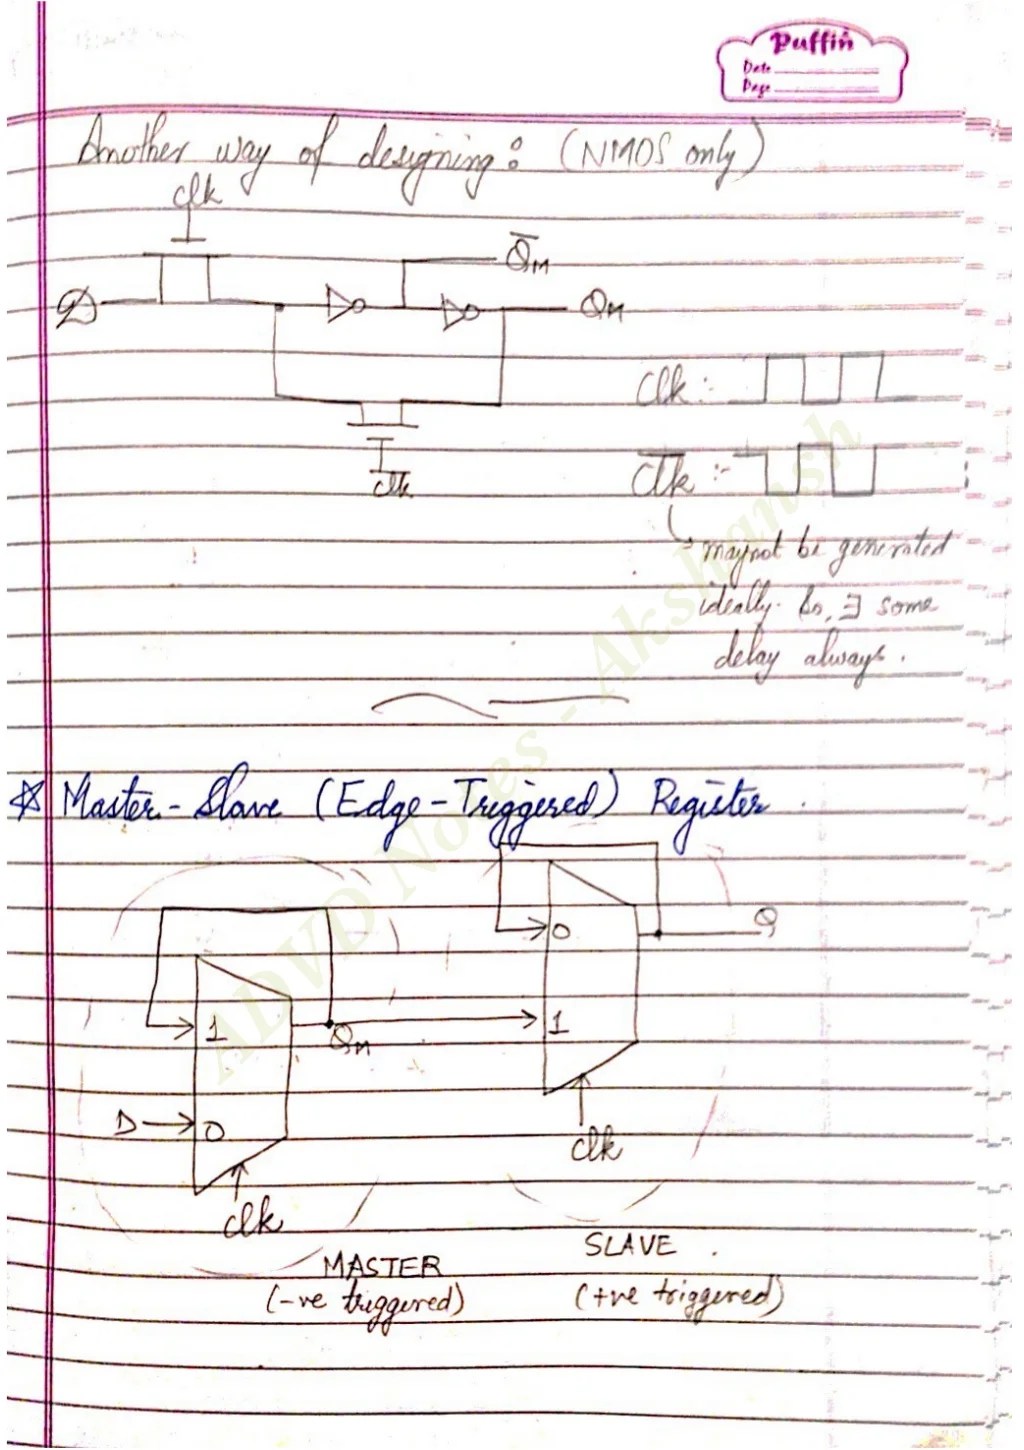 Puffin
Date
Page
Another way of designing: (NMOS only)
clk
Q̅M
D
QM
Clk :-
C̅l̅k̅ :-
c̅l̅k̅
may not be generated
ideally. So, ∃ some
delay always.
☆ Master-Slave (Edge-Triggered) Register
0
Q
1
1
QM
D
0
clk
clk
SLAVE
MASTER
(-ve triggered)
(+ve triggered)
ADVD Notes - Akshansh